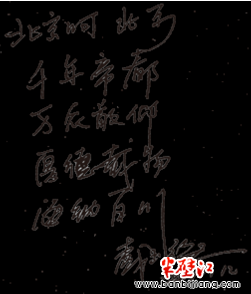 北京啊北京
千年帝都
万众敬仰
厚德载物
海纳百川
半壁江
www.banbijiang.com